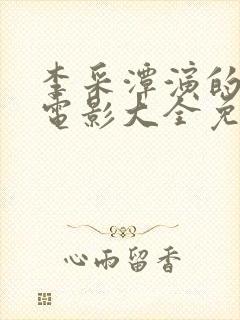 李采潭演的
电影大全免
心雨留香